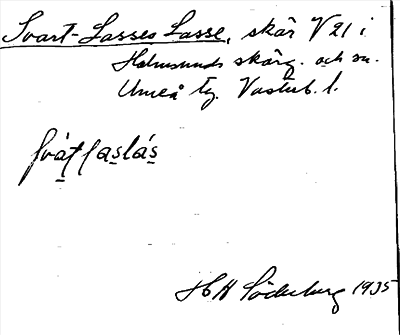 Svart-Lasses Lasse, skär V 21 i
Holmsunds skärg. och sn.
Umeå tg. Västerb. l.
svát laslás
H Söderberg 1935